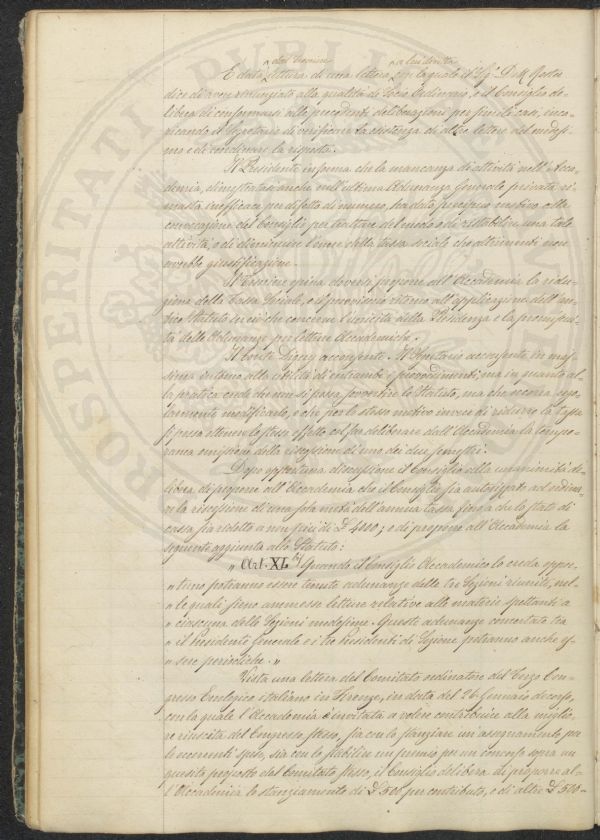 dal Tesoriere a lui diretta
È data lettura di una lettera con la quale il Sig. Dr. M. Restes
dice di aver rinunziato alla qualità di Socio Ordinario, e il Consiglio de-
libera di conformarsi alle precedenti deliberazioni per simili casi, inca-
ricando il Segretario di verificare la esistenza di altre lettere del medesi-
mo e di condurre la risposta.
Il Presidente informa che la mancanza di attività nell'Acca-
demia, dimostratasi anche nell'ultima Adunanza Generale privata ri-
masta inefficace per difetto di numero, ha dato preciso motivo alla
convocazione del Consiglio per trattare del modo o di ristabilire una tale
attività, o di diminuire l'onere della tassa sociale che altrimenti non
avrebbe giustificazione.
Il Tesoriere opina doversi proporre all'Accademia la ridu-
zione della Tassa Sociale, e il provvisorio ritorno all'applicazione dell'an-
tico Statuto in ciò che concerne l'unicità della Presidenza e la promiscui-
tà delle Adunanze per letture Accademiche.
Il Conte Digny acconsente. Il Segretario acconsente in mas-
sima intorno alla utilità di entrambi i provvedimenti; ma in quanto al-
la pratica crede che non si possa sovvertire lo Statuto, ma che occorra rego-
larmente modificarlo, e che per lo stesso motivo invece di ridurre la tassa
si possa ottenere lo stesso effetto col far deliberare dall'Accademia la tempo-
ranea omissione della riscossione di uno dei due semestri.
Dopo opportuna discussione il Consiglio alla unanimità de-
libera di proporre all'Accademia che il Consiglio sia autorizzato ad ordina-
re la riscossione di una sola metà dell'annua tassa fino a che lo stato di
cassa sia ridotto a non più di £ 4000; e di proporre all'Accademia la
seguente aggiunta allo Statuto:
" Art. XL bis Quando il Consiglio Accademico lo creda oppor-
" tuno potranno essere tenute adunanze delle tre Sezioni riunite, nel-
" le quali sieno ammesse letture relative alle materie spettanti a
" ciascuna delle Sezioni medesime. Queste adunanze concertate tra
" il Presidente Generale e i tre Presidenti di Sezione potranno anche es-
" sere periodiche. "
Vista una lettera del Comitato ordinatore del Terzo Con-
gresso Enologico italiano in Firenze, in data del 26 Gennaio decorso,
con la quale l'Accademia è invitata a volere contribuire alla miglio-
re riuscita del Congresso stesso, sia con lo stanziare un assegnamento per
le occorrenti spese, sia con lo stabilire un premio per un concorso sopra un
quesito proposto dal Comitato stesso, il Consiglio delibera di proporre al-
l'Accademia lo stanziamento di £ 500 per contributo, e di altre £ 500